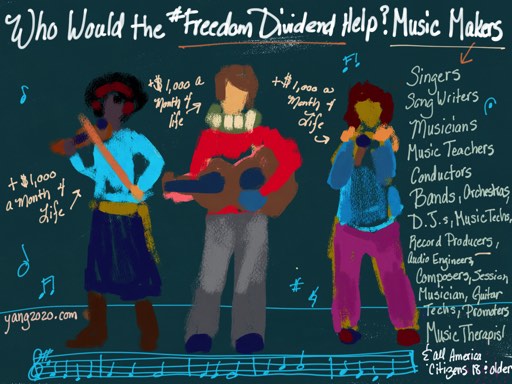 Who Would the #Freedom Dividend Help? Music Makers
+$1,000 a
Month 4
life
+$1,000 a
Month 4
Life
+$1,000
a Month 4
Life
Singers
Song Writers
Musicians
Music Teachers
Conductors
Bands, Orchestras,
D.J.s, Music Techs,
Record Producers,
Audio Engineers,
Composers, Session
Musician, Guitar
Techs, Promoters
Music Therapist
& all America
Citizens 18 & older
yang2020.com